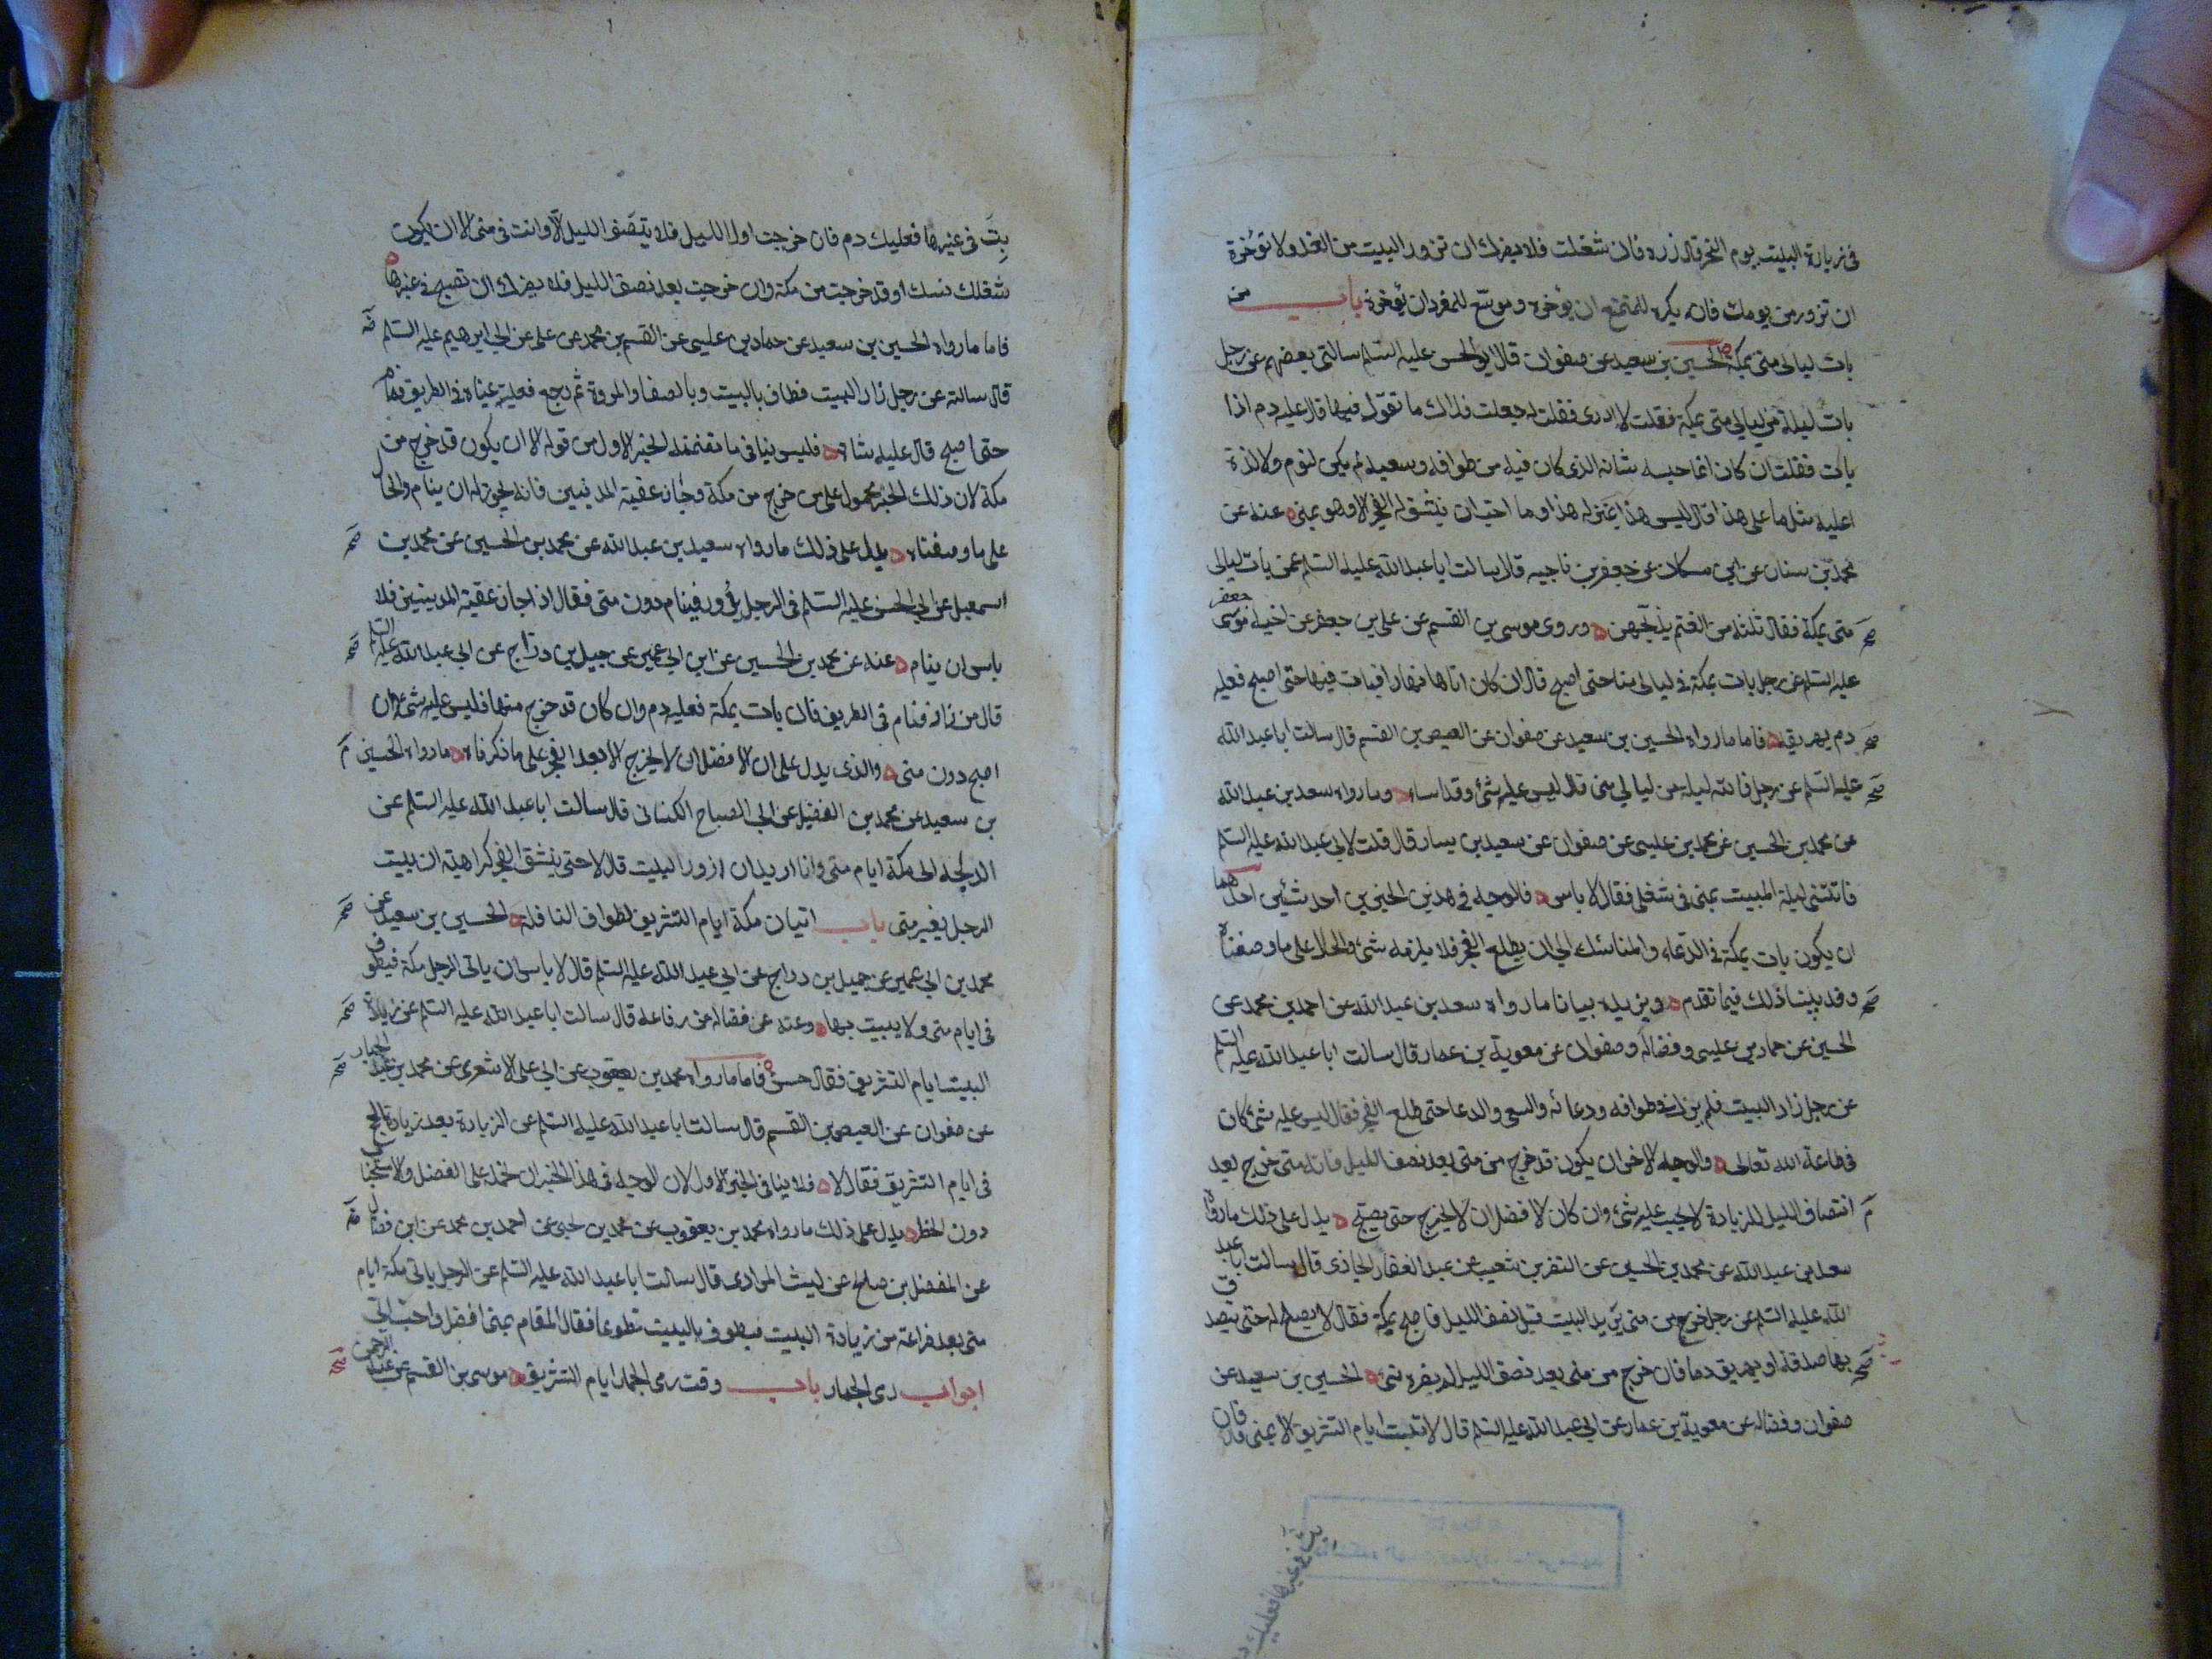 في زيارة البيت يوم النحر قال زره فان شغلت فلا يضرك ان تزور البيت من الغد ولا تؤخره
ان تزور من يومك فانه يكره للمتمتع ان يؤخره وموسّع للمفرد ان يؤخره باب من
بات ليالى منى بمكة الحسين بن سعيد عن صفوان قال قال ابو الحسن عليه السلم سالنى بعضهم عن رجل
بات ليلة من ليالي منى بمكة فقلت لا ادرى فقلت له جعلت فداك ما تقول فيها قال عليه دم اذا
بات فقلت ان كان انما حبسه شانه الذى كان فيه من طوافه وسعيه لم يكن لنوم ولا لذة
اعليه مثل ما على هذا قال ليس هذا بمنزلة هذا وما احب ان ينشق له الفجر الا وهو بمنى عنه عن
محمد بن سنان عن ابن مسكان عن جعفر بن ناجيه قال سالت ابا عبد الله عليه السلم عمن بات ليالى
منى بمكة فقال ثلثة من الغنم يذبحهن وروى موسى بن القسم عن على بن جعفر عن اخيه موسى جعفر
عليه السلم عن رجل بات بمكة في ليالى منا حتى اصبح قال ان كان اتاها نهارا فبات فيها حتى اصبح فعليه
دم يهريقه فاما ما رواه الحسين بن سعيد عن صفوان عن العيص بن القسم قال سالت ابا عبد الله
عليه السلم عن رجل فاتته ليلة من ليالي منى قال ليس عليه شئ وقد اساء وما رواه سعد بن عبد الله
عن محمد بن الحسين عن محمد بن عليسى عن صفوان عن سعيد بن يسار قال قلت لابي عبد الله عليه السلم
فاتتنى ليلة المبيت بمنى في شغل فقال لا باس فالوجه في هذين الخبرين احد شئيين احدهما
ان يكون بات بمكة في الدعاء والمناسك الى ان يطلع الفجر فلا يلزمه شئ والحال على ما وصفناه
وقد بينا ذلك فيما تقدم ويزيده بيانا ما رواه سعد بن عبد الله عن احمد بن محمد عن
الحسين عن حماد بن عليسى وفضالة وصفوان عن معوية بن عمار قال سالت ابا عبد الله عليه السلم
عن رجل زار البيت فلم يزل في طوافه ودعائه والسعى والدعا حتى طلع الفجر فقال ليس عليه شئ كان
في طاعة الله تعالى والوجه الاخر ان يكون قد خرج من منى بعد نصف الليل فانه متى خرج بعد
انتصاف الليل للزيارة لا يجب عليه شئ وان كان الافضل ان لا يخرج حتى يصبح يدل على ذلك ما رواه
سعد بن عبد الله عن محمد بن الحسين عن النضر بن شعيب عن عبد الغفار الجازى قال سالت ابا عبد
الله عليه السلم عن رجل خرج من منى يريد البيت قبل نصف الليل فاصبح بمكة فقال لا يصلح له حتى يتصدق
بها صدقة او يهريق دما فان خرج من منى بعد نصف الليل لم يضره شئ الحسين بن سعيد عن
صفوان وفضاله عن معوية بن عمار عن ابي عبد الله عليه السلم قال لا تبت ايام التشريق الا بمنى فان
بت في غيرها فعليك
بِتَّ في غيرها فعليك دم فان خرجت اول الليل فلا ينتصف الليل الّا وانت في منى الا ان يكون
شغلك نسك او قد خرجت من مكة وان خرجت بعد نصف الليل فلا يضرك ان تصبح في غيرها
فاما ما رواه الحسين بن سعيد عن حماد بن عليسى عن القسم بن محمد عن على عن ابي ابرهيم عليه السلم
قال سالته عن رجل زار البيت فطاف بالبيت وبالصفا والمروة ثم رجع فغلبته عيناه في الطريق فنام
حتى اصبح قال عليه شاة فليس ينافى ما تضمنه الخبر الاول من قوله الا ان يكون قد خرج من
مكة لان ذلك الخبر محمول على من خرج من مكة وجاز عقبة المدنيين فانه يجوز له ان ينام والحال
على ما وصفناه يدل على ذلك ما رواه سعيد بن عبد الله عن محمد بن الحسين عن محمد بن
اسمعيل عن ابي الحسن عليه السلم في الرجل يزور فينام دون منى فقال اذا جاز عقبة المدينيين فلا
باس ان ينام عنه عن محمد بن الحسين عن ابن ابي عمير عن جميل بن دراج عن ابي عبد الله عليه السلم
قال من زار فنام في الطريق فان بات بمكة فعليه دم وان كان قد خرج منها فليس عليه شئ وان
اصبح دون منى والذى يدل على ان الافضل ان لا يخرج الا بعد الفجر على ما ذكرناه ما رواه الحسين
بن سعيد عن محمد بن الفضيل عن ابي الصباح الكنانى قال سالت ابا عبد الله عليه السلم عن
الدلجة الى مكة ايام منى وانا اريد ان ازور البيت قال لا حتى ينشق الفجر كراهية ان يبيت
الرجل بغير منى باب اتيان مكة ايام التشريق لطواف النافلة الحسين بن سعيد عن
محمد بن ابي عمير عن جميل بن دراج عن ابي عبد الله عليه السلم قال لا باس ان ياتى الرجل مكة فيطوف
في ايام منى ولا يبيت بها وعنه عن فضالة عن رفاعة قال سالت ابا عبد الله عليه السلم عن زيارة
البيت ايام التشريق فقال حسن فاما ما رواه محمد بن يعقوب عن ابي على الاشعرى عن محمد بن عبد الجبار
عن صفوان عن العيص بن القسم قال سالت ابا عبد الله عليه السلم عن الزيارة بعد زيارة الحج
في ايام التشريق فقال لا فلا ينافى الخبر الاول لان الوجه في هذا الخبر ان نحمله على الفضل والاستحباب
دون الحظر يدل على ذلك ما رواه محمد بن يعقوب عن محمد بن يحيى عن احمد بن محمد عن ابن فضال
عن المفضل بن صالح عن ليث المرادى قال سالت ابا عبد الله عليه السلم عن الرجل ياتى مكة ايام
منى بعد فراغه من زيارة البيت فيطوف بالبيت تطوعا فقال المقام بمنى افضل واحب الى
ابواب رمى الجمار باب وقت رمى الجمار ايام التشريق موسى بن القسم عن عبد الرحمن